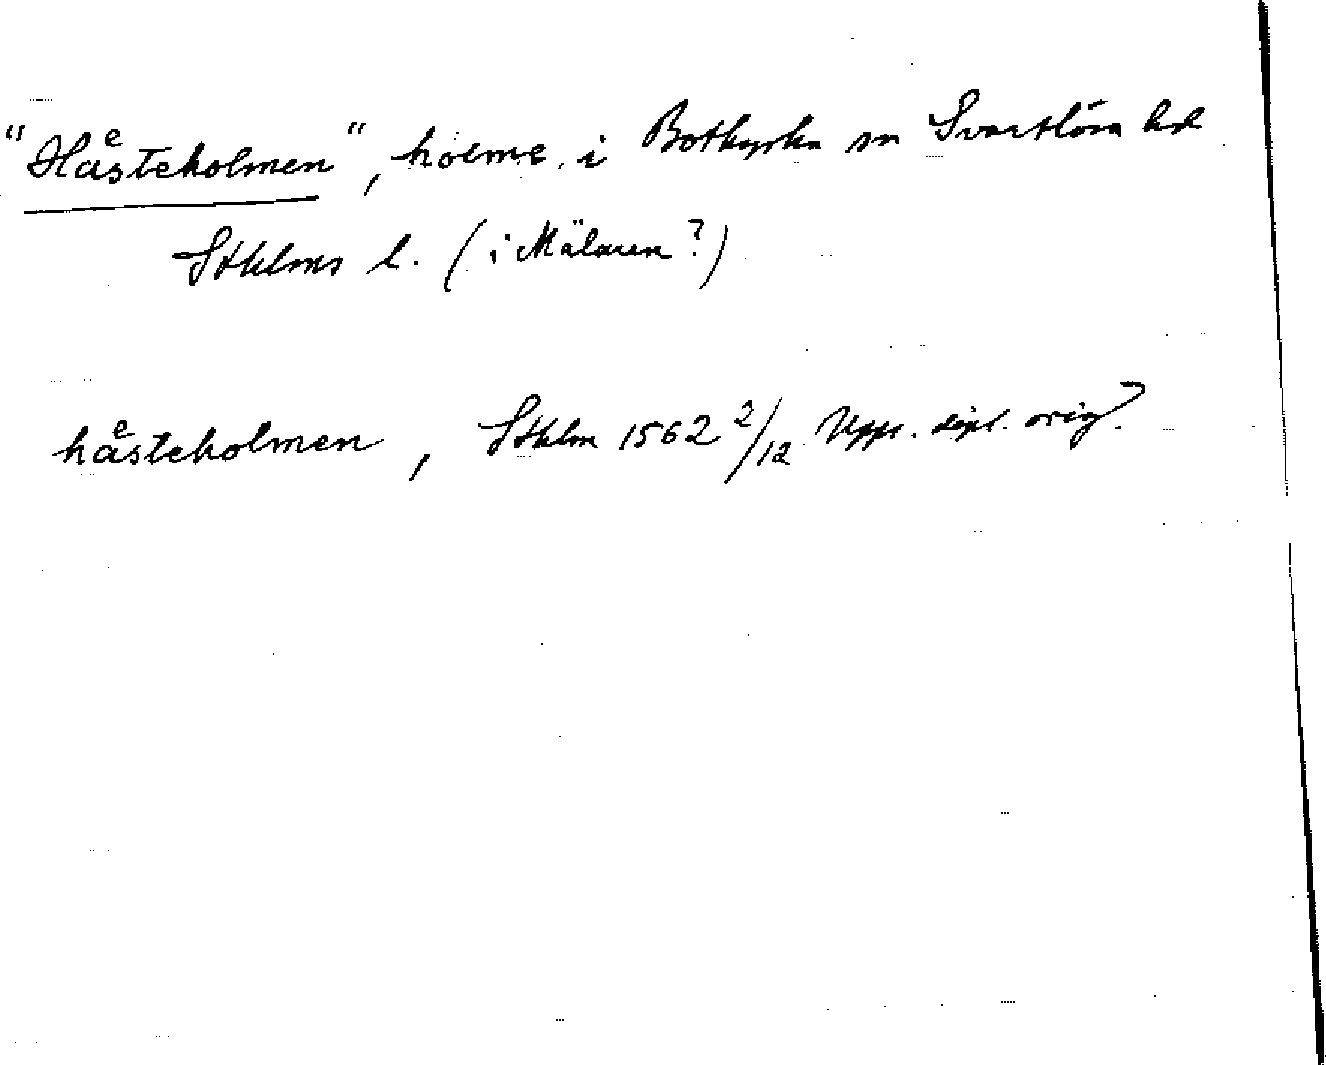 "Haͤsteholmen", holme i Botkyrka sn Svartlösa hd
Sthlms l. (i Mälaren?)
haͤsteholmen, Sthlm 1562 2/12 Upps. dipl. orig.